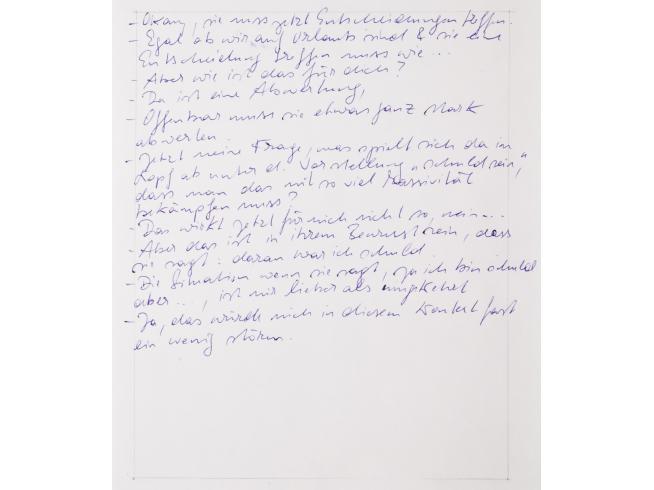 - Okay, sie muss jetzt Entscheidungen treffen.
- Egal ob wir auf Urlaub sind & sie eine
Entscheidung treffen muss wie ...
- Aber wie ist das für dich?
- Da ist eine Abwertung,
- Offenbar muss sie etwas ganz stark
abwerten.
- Jetzt meine Frage, was spielt sich da im
Kopf ab unter d. Vorstellung „schuld sein",
dass man das mit so viel Massivität
bekämpfen muss?
- Das wirkt jetzt für mich nicht so, nein ...
- Aber das ist in ihrem Bewusstsein, dass
sie sagt: daran war ich schuld.
- Die Situation wenn sie sagt, ja ich bin schuld
aber ..., ist mir lieber als umgekehrt
- Ja, das würde mich in diesem Kontext fast
ein wenig stören.